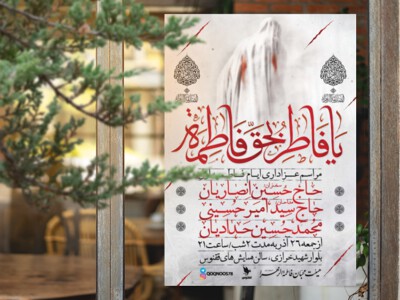 یا فاطر بحق فاطمة
مراسم عزاداری ایام فاطمیه
حاج حسین انصاریان
حاج سید امیر حسینی
محمدحسین حدادیان
از جمعه ۲۶ آذر به مدت ۲ شب / ساعت ۲۱
بلوار شهید خرازی، سالن همایش های ققنوس
هیئت محبان فاطمة الزهرا
QOQNOOS.IR